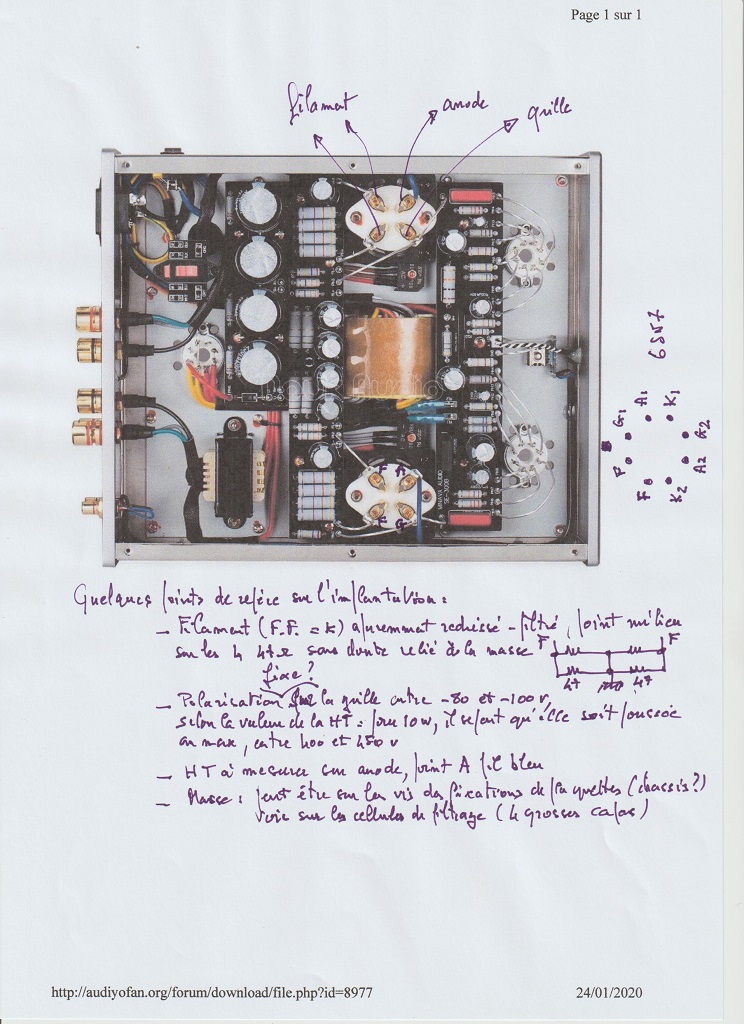 Page 1 sur 1
filament
anode
grille
6SN7
G1 A1 K1
G2
A2
K2
F
F
F A
F G
MINAVA AUDIO
Quelques points de repère sur l'implantation :
– Filament (F.F. = K) apparemment redressé - filtré, point milieu F F
sur les 4 47Ω sans doute relié à la masse
47 47
fixe ?
– Polarisation sur la grille entre -80 et -100 v,
selon la valeur de la HT : pour 10w, il se peut qu'elle soit poussée
au max, entre 400 et 450 v
– HT à mesurer sur anode, point A fil bleu
– Masse : peut être sur les vis des fixations de plaquettes (chassis ?)
voir sur les cellules de filtrage (4 grosses capas)
http://audiyofan.org/forum/download/file.php?id=8977
24/01/2020